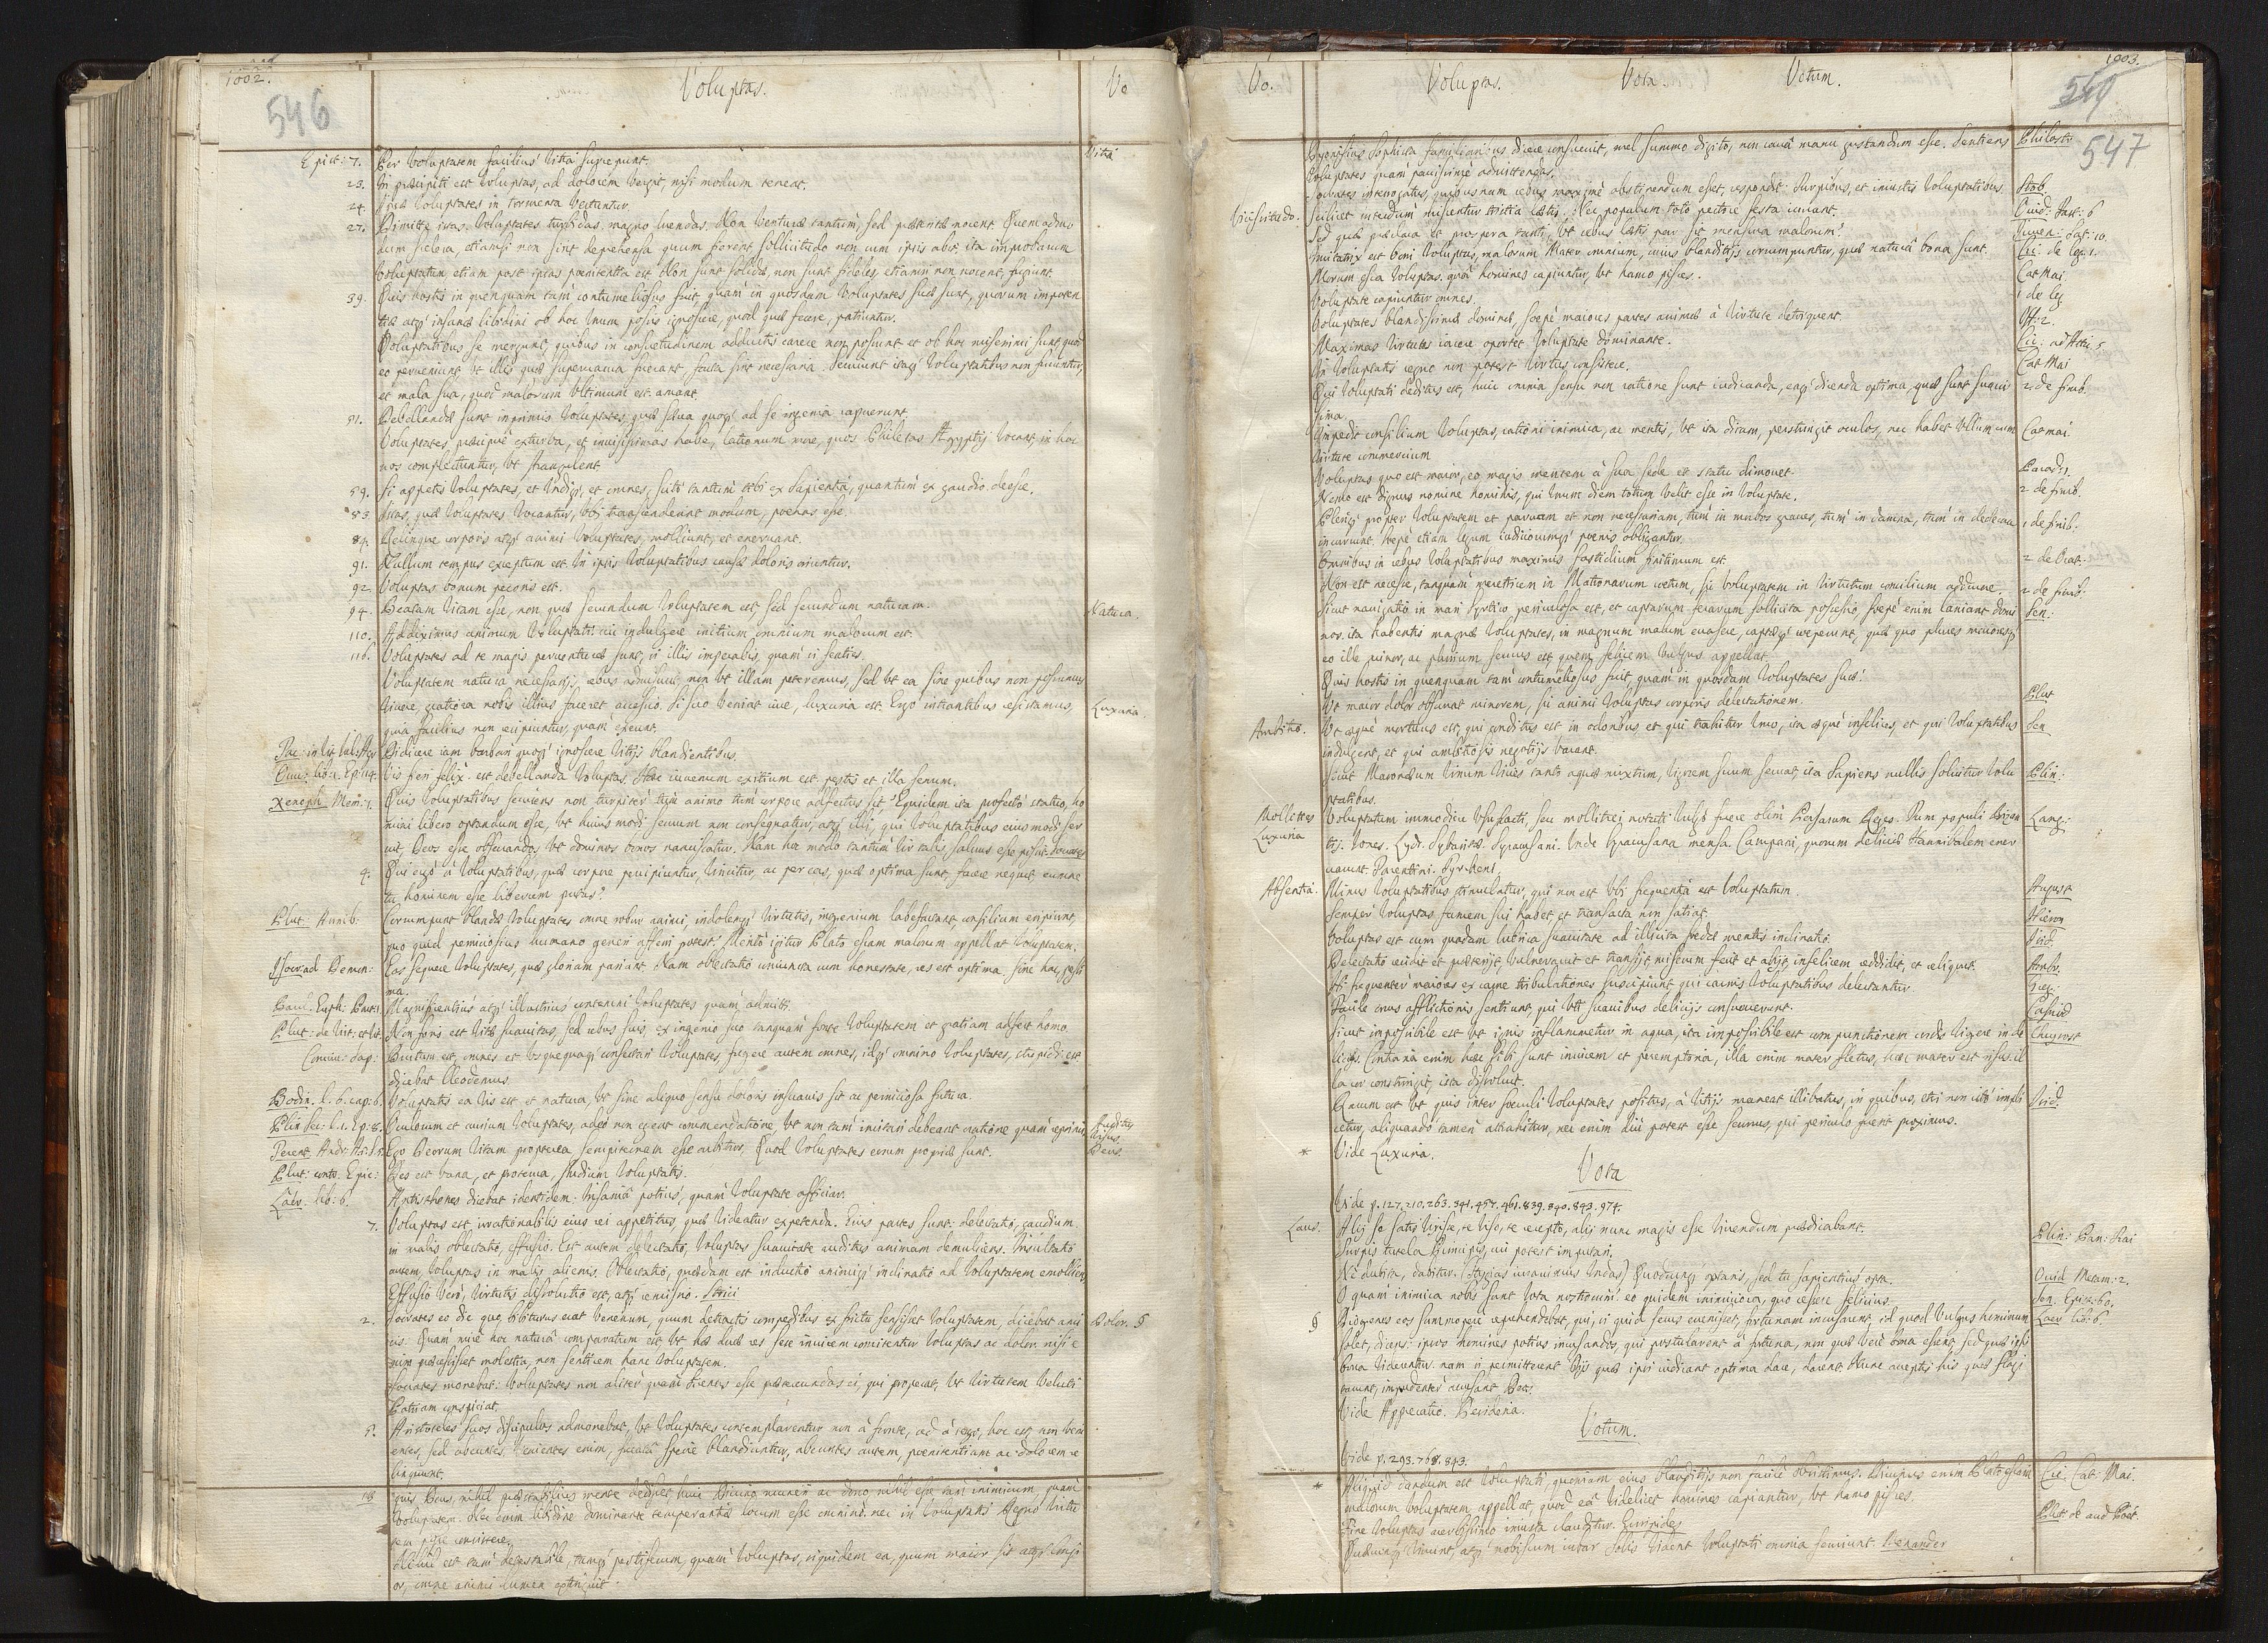 1002.
546
Voluptas.
Vo
Epist: 7. Per Voluptatem facilius Vitia surrepunt. Vitia
23. In praecipiti est Voluptas, ad dolorem Vergit, nisi modum teneat.
24. Ipsae Voluptates in tormenta Vertuntur.
27. Dimitte istas Voluptates turbidas, magno luendas. Non Venturae tantum, sed praeteritae nocent. Quemadmo
dum scelera, etiamsi non sint deprehensa quum fierent, sollicitudo non cum ipsis abit, ita improbarum
Voluptatum etiam post ipsas poenitentia est. Non sunt solidae, non sunt fideles, etiamsi non nocent, fugiunt.
39. Quis hostis in quenquam tam contumeliosus fuit, quam in quosdam Voluptates suae sunt, quorum impoten
tiae atq insanae libidini ob hoc Vnum possis ignoscere, quod quae fecere, patiuntur.
Voluptatibus se mergunt, quibus in consuetudinem adductis carere non possunt, et ob hoc miserrimi sunt, quod
eo pervenerunt Vt illis quae supervacua fuerant, facta sint necessaria. Serviunt itaq Voluptatibus non fruuntur,
et mala sua, quod malorum Vltimum est, amant.
51. Debellandae sunt inprimis Voluptates, quae saeva quoq ad se ingenia rapuerunt.
Voluptates praecipue exturba, et invisissimas habe, latronum more, quos Philetas Aegyptij Vocant, in hoc
nos complectuntur, Vt strangulent.
59. Si appetis Voluptates, et Vndiq, et omnes, scito tantum tibi ex Sapientia, quantum ex gaudio deesse.
83. Istas, quae Voluptates Vocantur, Vbi transcenderint modum, poenas esse.
84. Relinque corporis atq animi Voluptates, molliunt, et enervant.
91. Nullum tempus exceptum est. In ipsis Voluptatibus causae doloris oriuntur.
92. Voluptas bonum pecoris est.
94. Beatam Vitam esse, non quae secundum Voluptatem est, sed secundum naturam. Natura.
110. Addiximus animum Voluptati cui indulgere initium omnium malorum est.
116. Voluptates ad te magis perventurae sunt, si illis imperabis, quam si servies.
Voluptatem natura necessarijs rebus admiscuit, non Vt illam peteremus, sed Vt ea sine quibus non possumus
Vivere, gratiora nobis illius faceret accessio. Si suo Veniat iure, luxuria est. Ergo intrantibus resistamus, Luxuria.
quia facilius non recipiuntur, quam exeunt.
Didicere iam barbari quoq ignoscere Vitijs blandientibus.
Vis fieri felix: est debellanda Voluptas. Haec iuvenum exitium est, pestis et illa senum.
Xenoph. Mem: 1. Quis Voluptatibus serviens non turpiter tum animo tum corpore adfectus sit? Equidem ita profecto statuo, ho
mini libero optandum esse, Vt huiusmodi servum non consequatur, atq illi, qui Voluptatibus eiusmodi ser
vit, Deos esse observandos, Vt dominos bonos nanciscatur. Nam hoc modo tantum Vir talis salvus esse possit. Socrates
4. Qui ergo a Voluptatibus, quae corpore percipiuntur, Vincitur, ac per eas, quae optima sunt, facere nequit, eumne
tu hominem esse liberum putas?
Plut: Annib. Corrumpunt blandae Voluptates omne robur animi, indolemq Virtutis, ingenium labefactant, consilium eripiunt,
quo quid perniciosius humano generi afferri potest? Merito igitur Plato escam malorum appellat Voluptatem.
Isocr. ad Demon: Eas sequere Voluptates, quae gloriam pariunt. Nam oblectatio coniuncta cum honestate, res est optima, sine hac pessi
ma.
Magnificentius atq illustrius contemni Voluptates quam admitti.
Non foris est Vitae suavitas, sed rebus suis, ex ingenio suo tanquam fonte Voluptatem et gratiam adfert homo.
Conviv: Sap: Brutum est, omnes et Vsquequaq consectari Voluptates, fugere autem omnes, idq omnino Voluptates, stupidi est
dicebat Cleodemus.
Bodin. l. 6. cap: 6. Voluptatis ea Vis est et natura, Vt sine aliquo sensu doloris insuavis sit ac perniciosa futura.
Plin Sec: l. 1. Ep: 8. Oculorum et aurium Voluptates, adeo non egent commendatione, Vt non tam incitari debeant oratione quam reprimi. Auditus
Visus.
Ego Deorum Vitam propterea sempiternam esse arbitror, Quod Voluptates eorum propriae sunt. Deus
Plut: contr. Epic: Res est vana, et proterva, studium Voluptatis.
Laer. lib: 6. Antisthenes dicebat identidem: Insania potius, quam Voluptate afficiar.
7. Voluptas est, irrationabilis eius rei appetitus, quae Videatur expetenda. Eius partes sunt: delectatio, gaudium
in malis oblectatio, effusio. Est autem delectatio, Voluptas suavitate auditus animam demulcens. Insultatio
autem, Voluptas in malis alienis. Oblectatio, quaedam est inductio animiq inclinatio ad Voluptatem emolliens
Effusio Vero, Virtutis dissolutio est, atq remissio. Stoici
2. Socrates eo die quo bibiturus erat Venenum, quum detractis compedibus ex frictu sensisset Voluptatem, dicebat ami Dolor. §
cis. Quam mire hoc natura comparatum est Vt hae duae res sese invicem comitentur Voluptas ac dolor. nisi e
nim praecessisset molestia, non sentirem hanc Voluptatem.
Socrates monebat: Voluptates non aliter quam Sirenes esse praetereundas ei, qui properat, Vt Virtutem Veluti
Patriam conspiciat.
5. Aristoteles suos discipulos admonebat, Vt Voluptates contemplarentur non a fronte, sed a tergo, hoc est, non Veni
entes, sed abeuntes. Venientes enim, fucata specie blandiuntur, abeuntes autem, poenitentiam ac dolorem re
linquunt.
quis Deus, nihil praestabilius mente dedisset, huic Divino muneri ac dono nihil esse tam inimicum, quam
Voluptatem. Nec enim libidine dominante temperantiae locum esse omnino. nec in Voluptatis Regno Virtu
tem posse consistere.
Nihil est tam detestabile, tamq pestiferum, quam Voluptas, siquidem ea, quum maior sit atq longi
or, omne animi lumen extinguit.
Vo.
Voluptas.
Vota
Votum.
1003.
549
547
Dionysius Sophista familiaribus dicere consuevit, mel summo digito, non cava manu gustandum esse. Sentiens Philostr.
Voluptates quam parcissime admittendas.
Socrates interrogatus, quibusnam rebus maxime abstinendum esset, respondit: Turpibus, et iniustis Voluptatibus. Stob.
Vicissitudo. Scilicet interdum miscentur tristia laetis. Nec populum toto pectore festa iuvant. Ovid: Fast: 6
Sed quae praeclara et prospera tanti, Vt rebus laetis par sit mensura malorum? Iuven: Sat: 10.
Imitatrix est boni Voluptas, malorum Mater omnium, cuius blanditijs corrumpuntur, quae natura bona sunt. Cic: de leg: 1.
Morum esca Voluptas, qua homines capiuntur, Vt hamo pisces. Cat mai.
Voluptate capiuntur omnes. 1 de leg
Voluptates blandissimae dominae, saepe maiores partes animae a Virtute detorquent. Off: 2.
Maximas Virtutes iacere oportet Voluptate dominante. Cic: ad Attic 5
In Voluptatis regno non potest Virtus consistere. Cat Mai
Qui Voluptati deditus est, huic omnia sensu non ratione sunt iudicanda, eaq dicenda optima, quae sunt suavis 2 de finib.
sima.
Impedit consilium Voluptas, rationi inimica, ac mentis, Vt ita dicam, perstringit oculos, nec habet Vllum cum Cat mai.
Virtute commercium
Voluptas quo est maior, eo magis mentem a sua sede et statu dimovet. Parad: 1.
Nemo est dignus nomine hominis, qui Vnum diem totum velit esse in Voluptate. 2 de finib.
Pleriq propter Voluptatem et parvam et non necessariam, tum in morbos graves, tum in damna, tum in dedecora 1 de finib.
incurrunt, saepe etiam legum iudiciorumq poenis obligantur.
Omnibus in rebus Voluptatibus maximis fastidium finitimum est. 2 de Orat.
Non est necesse, tanquam meretricem in Matronarum coetum, sic voluptatem in Virtutum concilium adducere. 2 de finib:
Sicut navigatio in mari Syrtico periculosa est, et captarum ferarum sollicita possessio, saepe enim laniant domi Sen:
nos. ita habentis magnas Voluptates, in magnum malum evasere, captaeq coeperunt, quae quo plures maioresq
eo ille minor, ac plurium servus est, quem felicem vulgus appellat.
Quis hostis in quenquam tam contumeliosus fuit, quam in quosdam Voluptates suae!
Vt maior dolor obscurat minorem, sic animi Voluptas corporis delectationem. Plut
Ambitio. Vt aeque mortuus est, qui conditus est in odoribus et qui trahitur Vnco, ita aeque infelices, et qui Voluptatibus Sen
indulgent, et qui ambitiosis negotijs vacant.
Sicut Maroneum Vinum Vicies tanto aquae mixtum, Vigorem suum servat, ita Sapiens nullis solvitur Volu Plin:
ptatibus.
Mollities Voluptatum immodice Vsufacti, seu mollitiei notati Vulgo fuere olim Persarum Reges. Tum populi Byzan Lang:
Luxuria tij. Iones. Lydi. Sybaritae. Syracusani. Inde Syracusana mensa. Campani, quorum deliciae Hannibalem ener
varunt. Tarentini. Tyrrheni.
Absentia. Minus Voluptatibus stimulatur, qui non est Vbi frequentia est Voluptatum. August
Semper Voluptas famem sui habet, et transacta non satiat. Hieron
Voluptas est cum quadam lubrica suavitate ad illicita foedae mentis inclinatio. Isid.
Delectatio occidit et praeterijt, Vulneravit et transijt, miserum fecit et abijt, infelicem reddidit, et reliquit. Ambr.
Hi frequenter maiores ex carne tribulationes suscipiunt, qui carnis Voluptatibus delectantur. Greg:
Facile onus afflictionis sentiunt qui Vti suavibus delicijs consueverunt. Cassiod
Sicut impossibile est Vt ignis inflammetur in aqua, ita impossibile est compunctionem cordis Vigere in de Chrysost
licijs. Contraria enim haec sibi sunt invicem et peremptoria, illa enim mater fletus, haec mater est risus. il
la cor constringit, ista dissolvit.
Rarum est Vt quis inter saeculi Voluptates positus, a Vitijs maneat illibatus, in quibus, etsi non cito impli Isid.
cetur, aliquando tamen attrahitur, nec enim diu potest esse securus, qui periculo fuerit proximus.
* Vide Luxuria.
Vota
Vide p. 127. 210. 263. 341. 457. 461. 839. 840. 843. 974.
Laus. Alij se satis Vixisse, te Viso, te recepto, alij nunc magis esse Vivendum praedicabant. Plin: Pan: Trai
Turpis tutela Principis, cui potest imputari.
Ne dubita, dabitur (Stygias iuravimus Vndas) Quodcunq optaris, sed tu sapientius opta. Ovid Metam: 2.
O quam inimica nobis sunt Vota nostrorum! eo quidem inimiciora, quo cessere felicius. Sen. Epist: 60.
§ Diogenes eos summopere reprehendebat, qui, si quid secus evenisset, fortunam incusarent, id quod Vulgus hominum Laer lib: 6.
solet, dicens: ipsos homines potius incusandos, qui postularent a fortuna, non quae Vere bona essent, sed quae ipsis
bona viderentur. nam si permitterent Dijs quae ipsi iudicant optima dare, darent. Nunc acceptis his quae flagi
tarunt, impudenter accusant Deos.
Vide Apprecatio. Desideria.
Votum.
Vide p. 293. 768. 843.
* Aliquid dandum est Voluptati, quoniam eius blanditijs non facile obsistimus. Divinus enim Plato escam Cic. Cat: Mai.
malorum Voluptatem appellat, quod ea videlicet homines capiantur, Vt hamo pisces.
Fine Voluptas acerbissimo iniusta clauditur. Euripides Plut de aud Poet.
Quicunq Vivunt, atq nobiscum iubar Solis Vident Voluptati omnia serviunt. Menander